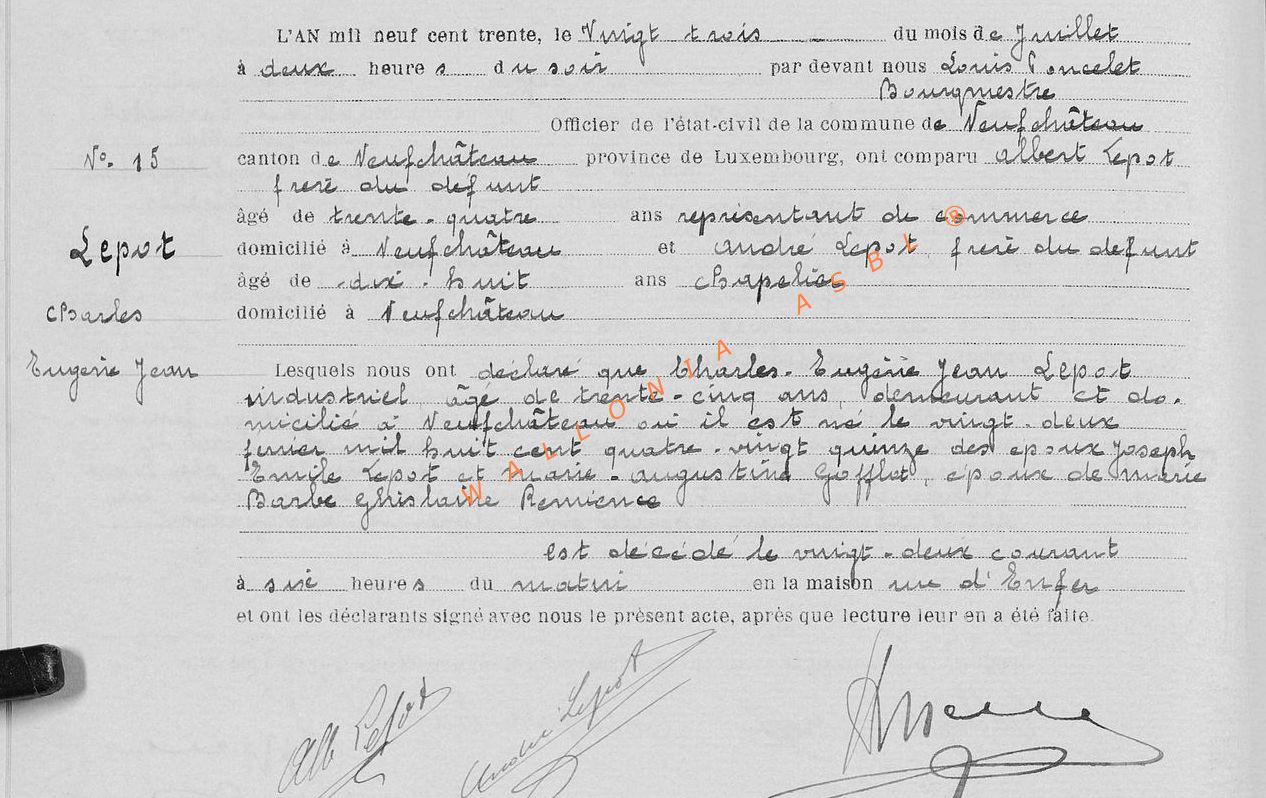 L'AN mil neuf cent trente, le Vingt trois du mois de Juillet
à deux heures du soir par devant nous Louis Poncelet
Bourgmestre
Officier de l'état-civil de la commune de Neufchâteau
N°. 15
canton de Neufchâteau province de Luxembourg, ont comparu Albert Lepot
frere du defunt
âgé de trente-quatre ans représentant de commerce
Lepot
domicilié à Neufchâteau et André Lepot frere du defunt
âgé de dix-huit ans chapelier
Charles
domicilié à Neufchâteau
Eugène Jean
Lesquels nous ont déclaré que Charles-Eugène Jean Lepot
industriel, âgé de trente-cinq ans, demeurant et do-
micilié à Neufchâteau où il est né le vingt-deux
fevrier mil huit cent quatre-vingt quinze des epoux Joseph
Emile Lepot et Marie-Augustine Gofflot, epoux de Marie
Barbe Ghislaine Remience
est décédé le vingt-deux courant
à six heures du matin en la maison rue d'Enfer
et ont les déclarants signé avec nous le présent acte, après que lecture leur en a été faite.
Alb Lepot
André Lepot
WALLONIA ASBL ®